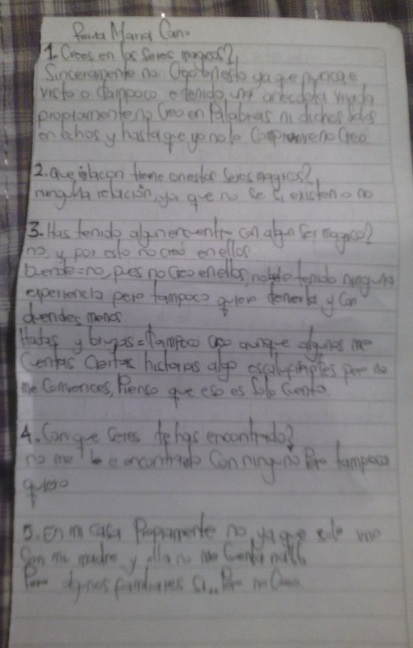 Paula Maria Cano
1. Crees en los seres magicos?
Sinceramente no Creo en esto ya que nunca e
visto o tampoco e tenido, una anecdota vivida
propiamente no Creo en Palabras ni dichos
en echos y hasta que yo no lo Compruebe no Creo.
2. que relacion tiene con estos Seres magicos?
ninguna relación, ya que no se si existen o no
3. Has tenido algun encuentro con algun Ser magico?
no, y por esto no creo en ellos
Duende = no, pues no Creo en ellos, no he tenido ninguna
experiencia pero tampoco quiero tenerla y con
duendes menos
Hadas y brujas = tampoco creo aunque algunos me
Cuentas Ciertas historias algo pero no
me Convences, Pienso que eso es Solo Cuento.
4. Con que Seres te has encontrado?
no me he encontrado Con ninguno Pero tampoco
quiero
5. En mi casa Propiamente no, ya que solo vivo
Con mi madre y ella no me Cuenta nada
Pero algunos familiares Si.. Pero no Creo